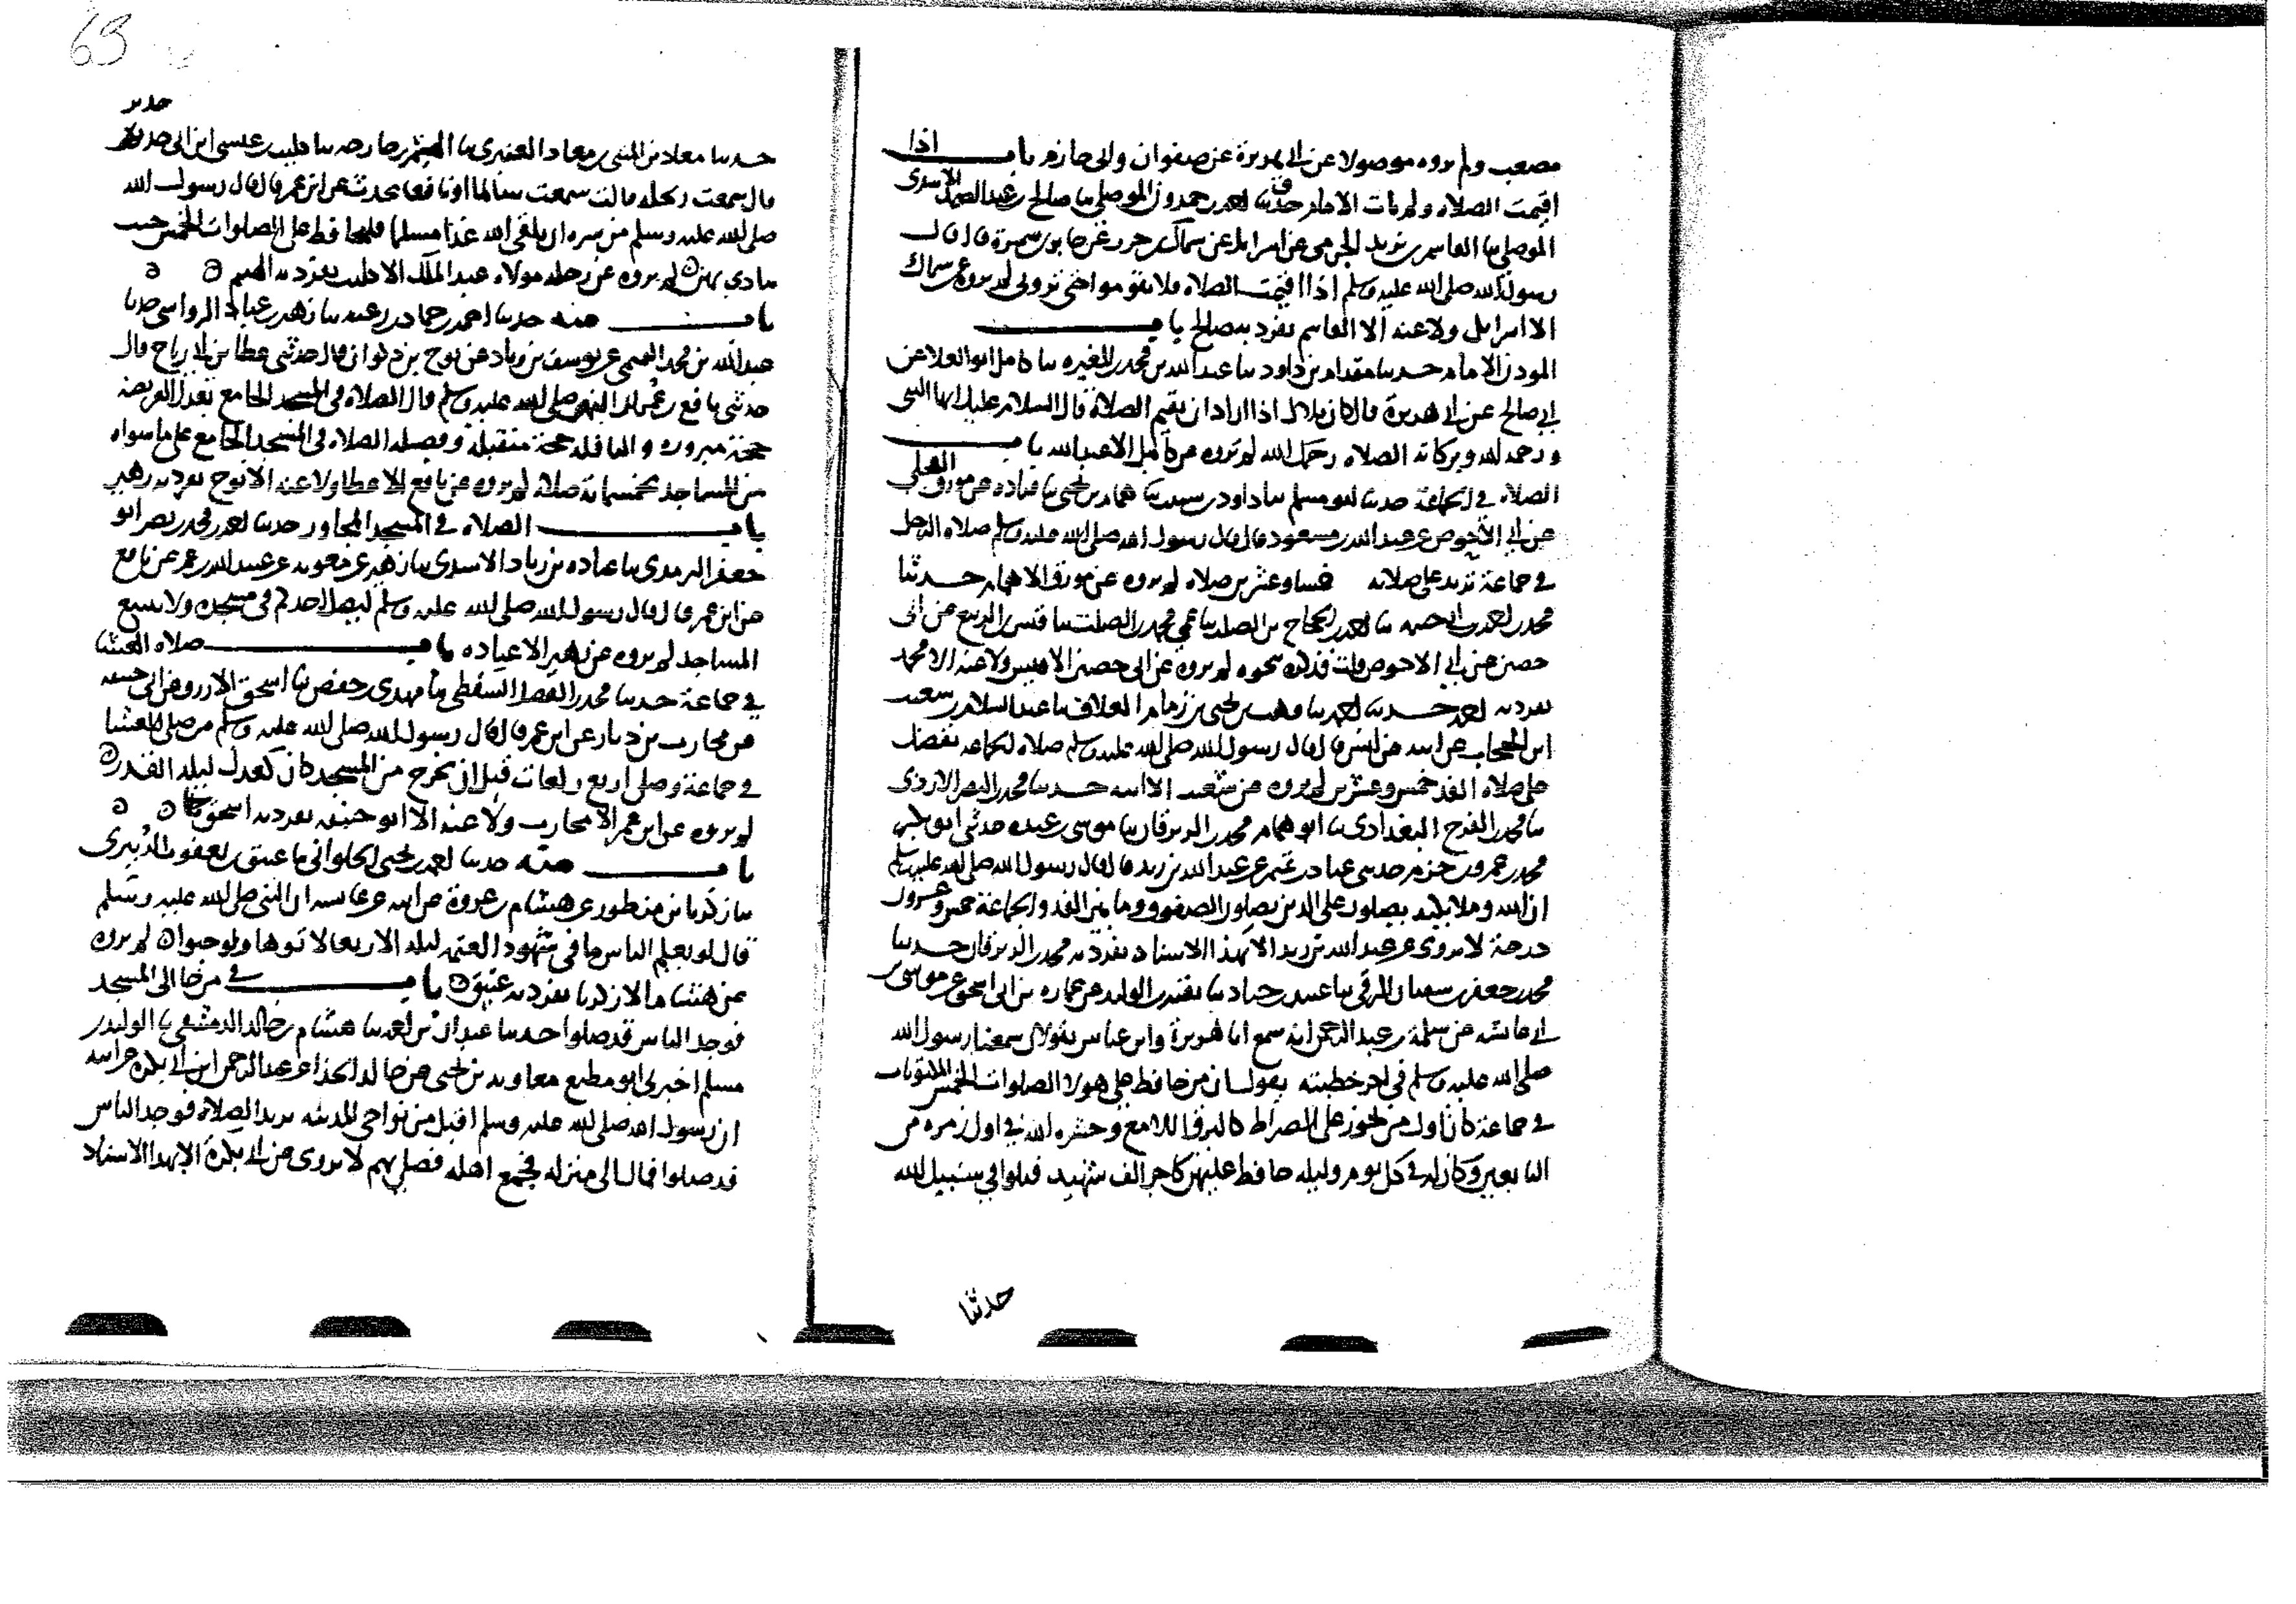 مصعب ولم يروه موصولا عن ابي هريرة عن صفوان والى حازم باب اذا
اقيمت الصلاه ولم يات الامام حدثنا احمد بن حمدون الموصلي ثنا صالح بن عبد الصمد الاسدى
الموصلي ثنا القاسم بن يزيد الجرمى عن اسرائيل عن سماك بن حرب عن جابر بن سمرة قال قال
رسول الله صلى الله عليه وسلم اذا اقيمت الصلاه فلا تقوموا حتى تروني لم يروه عن سماك
الا اسرايل ولا عنه الا القاسم تفرد به صالح باب
المودن الامام حدثنا مقدام بن داود ثنا عبد الله بن محمد بن المغيره ثنا كامل ابو العلا عن
ابي صالح عن ابي هريرة قال كان بلال اذا اراد ان يقيم الصلاة قال السلام عليك ايها النبي
ورحمة الله وبركاته الصلاه رحمك الله لم يروه عن كامل الا عبد الله باب
الصلاه في الجماعة حدثنا ابو مسلم ثنا داود بن شبيب ثنا همام بن يحيى ثنا قتاده عن مورق العجلي
عن ابي الاحوص عن عبد الله بن مسعود قال قال رسول الله صلى الله عليه وسلم صلاه الرجل
في جماعة تزيد على صلاته خمسا وعشرين صلاه لم يروه عن مورق الا همام حدثنا
محمد بن احمد بن ابي خيثمه ثنا احمد بن الحجاج بن الصلت ثنا عمي محمد بن الصلت ثنا قيس بن الربيع عن ابى
حصين عن ابي الاحوص قلت فذكره نحوه لم يروه عن ابى حصين الا قيس ولا عنه الا محمد
تفرد به احمد حدثنا احمد ثنا وهب بن يحيى بن زمام العلاف ثنا عبد السلام بن سعيد
ابن الحبحاب عن ابيه عن انس قال قال رسول الله صلى الله عليه وسلم صلاه الجماعه تفضل
على صلاه الفذ خمس وعشرين لم يروه عن شعيب الا ابنه حدثنا محمد بن النضر الازدى
ثنا محمد بن الفرج البغدادى ثنا ابو همام محمد بن الزبرقان ثنا موسى بن عبيده حدثني ابو بكر
محمد بن عمرو بن حزم حدثنى عباد بن تميم عن عبد الله بن زيد قال قال رسول الله صلى الله عليه وسلم
ان الله وملايكته يصلون على الدين يصلون الصفوف وما بين الفذ والجماعة خمس وعشرون
درجة لا يروى عن عبد الله بن زيد الا بهذا الاسناد تفرد به محمد بن الزبرقان حدثنا
محمد بن جعفر بن سفيان الرقي ثنا عبيد بن جناد ثنا بقية بن الوليد عن عماره بن ابى اسحق عن موسى بن
ابي عائشه عن سلمة بن عبد الرحمن انه سمع ابا هريرة وابن عباس يقولان سمعنا رسول الله
صلى الله عليه وسلم في اخر خطبته يقول ان من حافظ على هولا الصلوات الخمس المكتوبات
في جماعة كان اول من يجوز على الصراط كالبرق اللامع وحشره الله في اول زمره من
التابعين وكان له في كل يوم وليله حافظ عليهن كاجر الف شهيد قتلوا في سبيل الله
حدثنا
63
حدير
حدثنا معاذ بن المثنى بن معاد العنبرى ثنا الهيثم بن خارجه ثنا طليب بن عيسى ابن ابى حدير
قال سمعت رجله قالت سمعت سالما او نافعا يحدث عن ابن عمر قال قال رسول الله
صلى الله عليه وسلم من سره ان يلقى الله غدا مسلما فليحافظ على الصلوات الخمس حيث
ينادى بهن لم يروه عن رجله مولاه عبد الملك الا طليب تفرد به الهيثم
باب منه حدثنا احمد بن حماد بن زغبه ثنا زهير بن عباد الرواسى حدثنا
عبد الله بن محمد التميمى عن يوسف بن زياد عن نوح بن ذكوان قال حدثنى عطا بن ابي رباح قال
حدثنى نافع بن عمر ان النبى صلى الله عليه وسلم قال الصلاه في المسجد الجامع تعدل الفريضه
حجة مبروره والنافله حجة متقبله وفضلت الصلاه في المسجد الجامع على ما سواه
من المساجد بخمسمائة صلاه لم يروه عن نافع الا عطا ولا عنه الا نوح تفرد به زهير
باب الصلاه في المسجد المجاور حدثنا احمد بن محمد بن نصر ابو
جعفر الترمدى ثنا عباده بن زياد الاسدى ثنا زهير بن معويه عن عبيد الله بن عمر عن نافع
عن ابن عمر قال قال رسول الله صلى الله عليه وسلم ليصل احدكم في مسجده ولا يتبع
المساجد لم يروه عن زهير الا عباده باب صلاه العشا
في جماعة حدثنا محمد بن الفضل السقطى ثنا مهدى بن حفص ثنا اسحق الازرق عن ابى حنيفه
عن محارب بن دثار عن ابن عمر قال قال رسول الله صلى الله عليه وسلم من صلى العشا
في جماعة وصلى اربع ركعات قبل ان يخرج من المسجد كان كعدل ليله القدر
لم يروه عن ابن عمر الا محارب ولا عنه الا ابو حنيفه تفرد به اسحق
باب منه حدثنا احمد بن يحيى الحلوانى ثنا عتيق بن يعقوب الزبيرى
ثنا زكريا بن منظور عن هشام بن عروة عن ابيه عن عائشه ان النبى صلى الله عليه وسلم
قال لو يعلم الناس ما في شهود العتمه ليله الاربعا لاتوها ولو حبوا لم يروه
عن هشام الا زكريا تفرد به عتيق باب في من جا الى المسجد
فوجد الناس قد صلوا حدثنا عبدان بن احمد ثنا هشام بن خالد الدمشقى ثنا الوليد بن
مسلم اخبرني ابو مطيع معاويه بن يحيى عن خالد الحذا عن عبد الرحمن ابن ابي بكره عن ابيه
ان رسول الله صلى الله عليه وسلم اقبل من نواحى المدينه يريد الصلاه فوجد الناس
قد صلوا فمال الى منزله فجمع اهله فصلى بهم لا يروى عن ابي بكره الا بهدا الاسناد